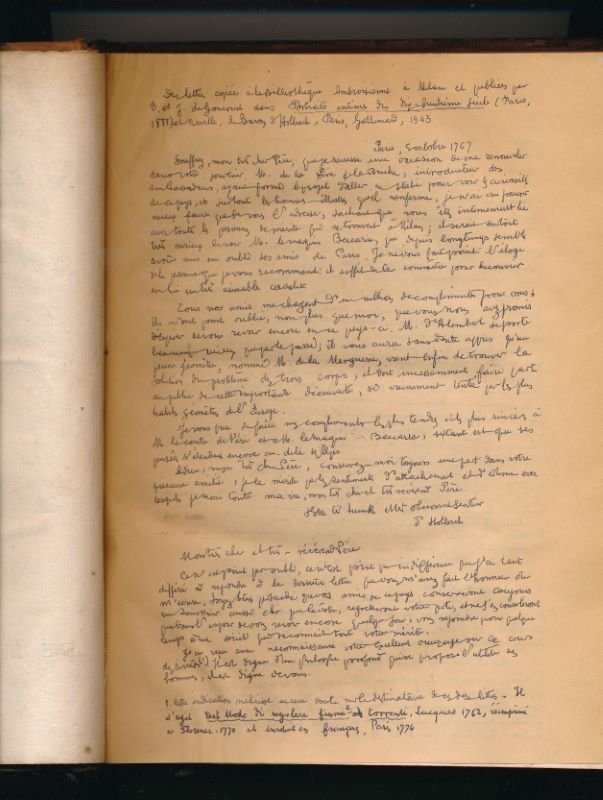 Des lettres copiées à la Bibliothèque Ambrosienne à Milan et publiées par
E. et J. de Goncourt dans Portraits intimes du Dix-huitième siècle (Paris,
et Naville, le Baron d'Holbach, Paris, Gallimard, 1943
Paris, 5 octobre 1767
Souffrez, mon très cher Père, que je saisisse une occasion de me renouveler
dans votre souvenir. M. de la Live de la Briche, introducteur des
ambassadeurs, ayant formé le projet d'aller en Italie pour voir les curiosités
de ce pays, et surtout les hommes illustres qu'il renferme, je n'ai cru pouvoir
mieux faire que de vous l'adresser, sachant que vous êtes intimement lié
avec toutes les personnes de mérite qui se trouvent à Milan; il serait surtout
très curieux de voir M. le marquis Beccaria, qui depuis longtemps semble
avoir mis en oubli ses amis de Paris. Je ne vous fait point l'éloge
de la personne que je vous recommande il suffit de la connaître pour découvrir
en lui un très aimable cavalier
Tous nos amis me chargent d'un million de compliments pour vous;
ils n'ont point oublié, non plus que moi, que vous nous avez promis
d'espérer de vous revoir encore en ce pays-ci. M. D'Alembert se porte
beaucoup mieux que par le passé; il vous aura sans doute appris qu'un
jeune géomètre, nommé M. de la Merguerie, vient enfin de trouver la
solution du problème des trois corps; il doit incessamment faire part
au public de cette importante découverte, si vainement tentée par les plus
habiles géomètres de l'Europe.
Je vous prie de faire mes compliments les plus tendres et les plus sincères à
M. le comte de Véri et à M. le marquis Beccaria, si tant est que ses
pensées s'étendent encore au-delà des Alpes
Adieu, mon très cher Père, conservez-moi toujours une part dans votre
précieuse amitié; je la mérite par les sentiments d'attachement et d'estime avec
lesquels je serai toute ma vie, mon très cher et très révérend Père
Votre très humble et très obéissant serviteur
D'Holbach
Mon très cher et très-révérend Père
Ce n'est point par oubli, ce n'est point par indifférence que j'ai tant
différé à répondre à la dernière lettre que vous m'avez fait l'honneur de
m'écrire. Soyez bien persuadé que vos amis de ce pays conserveront toujours
un souvenir aussi cher que le vôtre, regretteront votre perte, et
l'espoir de vous revoir encore quelque jour, vous reposer pour quelque
temps d'une
J'ai reçu avec reconnaissance votre excellent ouvrage sur le cours
des rivières¹; il est digne d'un philosophe profond qui se propose l'utilité des
hommes, il est digne de vous.
1. Cette indication ne laisse aucun doute sur le destinataire de ces deux lettres. Il
s'agit Del Modo di regolare fiumi e torrenti, Lucques 1762, réimprimé
à Florence 1770 et traduit en français, Paris 1774